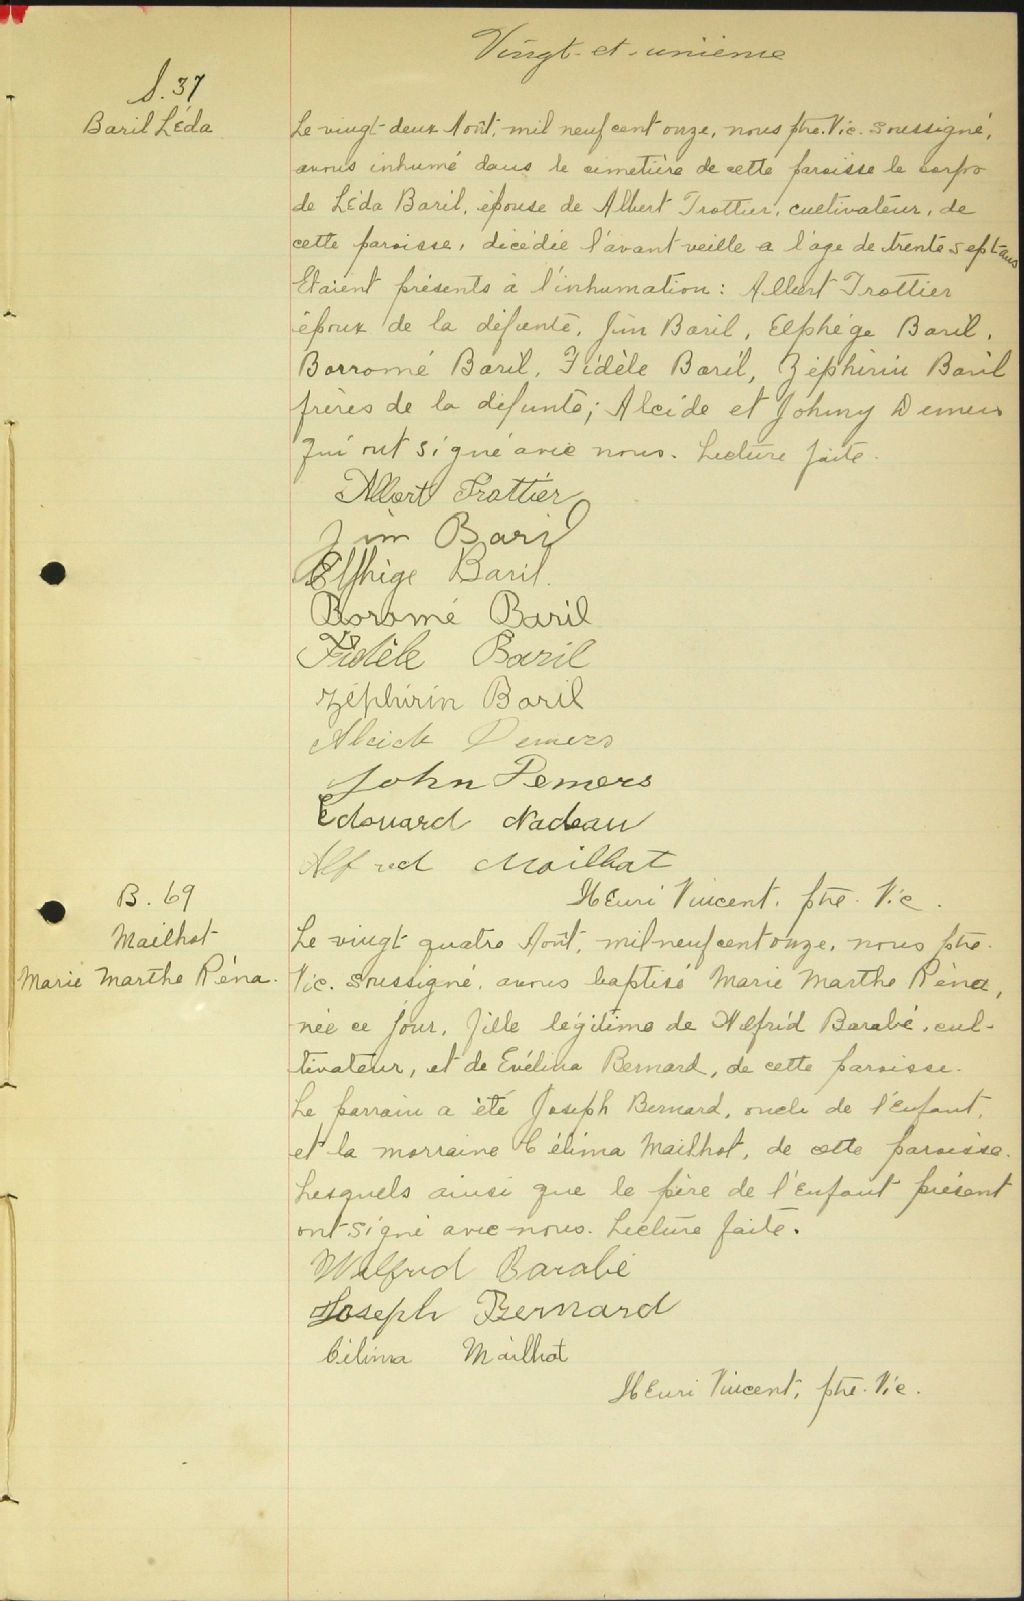 Vingt-et-unième
S. 37
Baril Léda
Le vingt-deux Août, mil neuf cent onze, nous ptre. Vic. soussigné,
avons inhumé dans le cimetière de cette paroisse le corps
de Léda Baril, épouse de Albert Trottier, cultivateur, de
cette paroisse, décédée l'avant veille a l'age de trente sept ans
Etaient présents à l'inhumation: Albert Trottier
époux de la défunte, Jim Baril, Elphége Baril,
Borromé Baril, Fidèle Baril, Zéphirin Baril
frères de la défunte; Alcide et Johnny Demers
qui ont signé avec nous. Lecture faite.
Albert Trottier
Jim Baril
Elphige Baril.
Boromé Baril
Fidèle Baril
Zéphirin Baril
Alcide Demers
John Demers
Edouard Nadeau
Alfred Mailhat
Henri Vincent, ptre. Vic.
B. 69
Mailhot
Marie Marthe Réna.
Le vingt quatre Août, mil neuf cent onze, nous ptre.
Vic. soussigné, avons baptisé Marie Marthe Réna,
née ce jour, fille légitime de Wilfrid Barabé, cul-
tivateur, et de Evélina Bernard, de cette paroisse.
Le parrain a été Joseph Bernard, oncle de l'enfant,
et la marraine Célima Mailhot, de cette paroisse.
Lesquels ainsi que le père de l'Enfant présent
ont signé avec nous. Lecture faite.
Wilfrid Barabé
Joseph Bernard
Célima Mailhot
Henri Vincent, ptre. Vic.